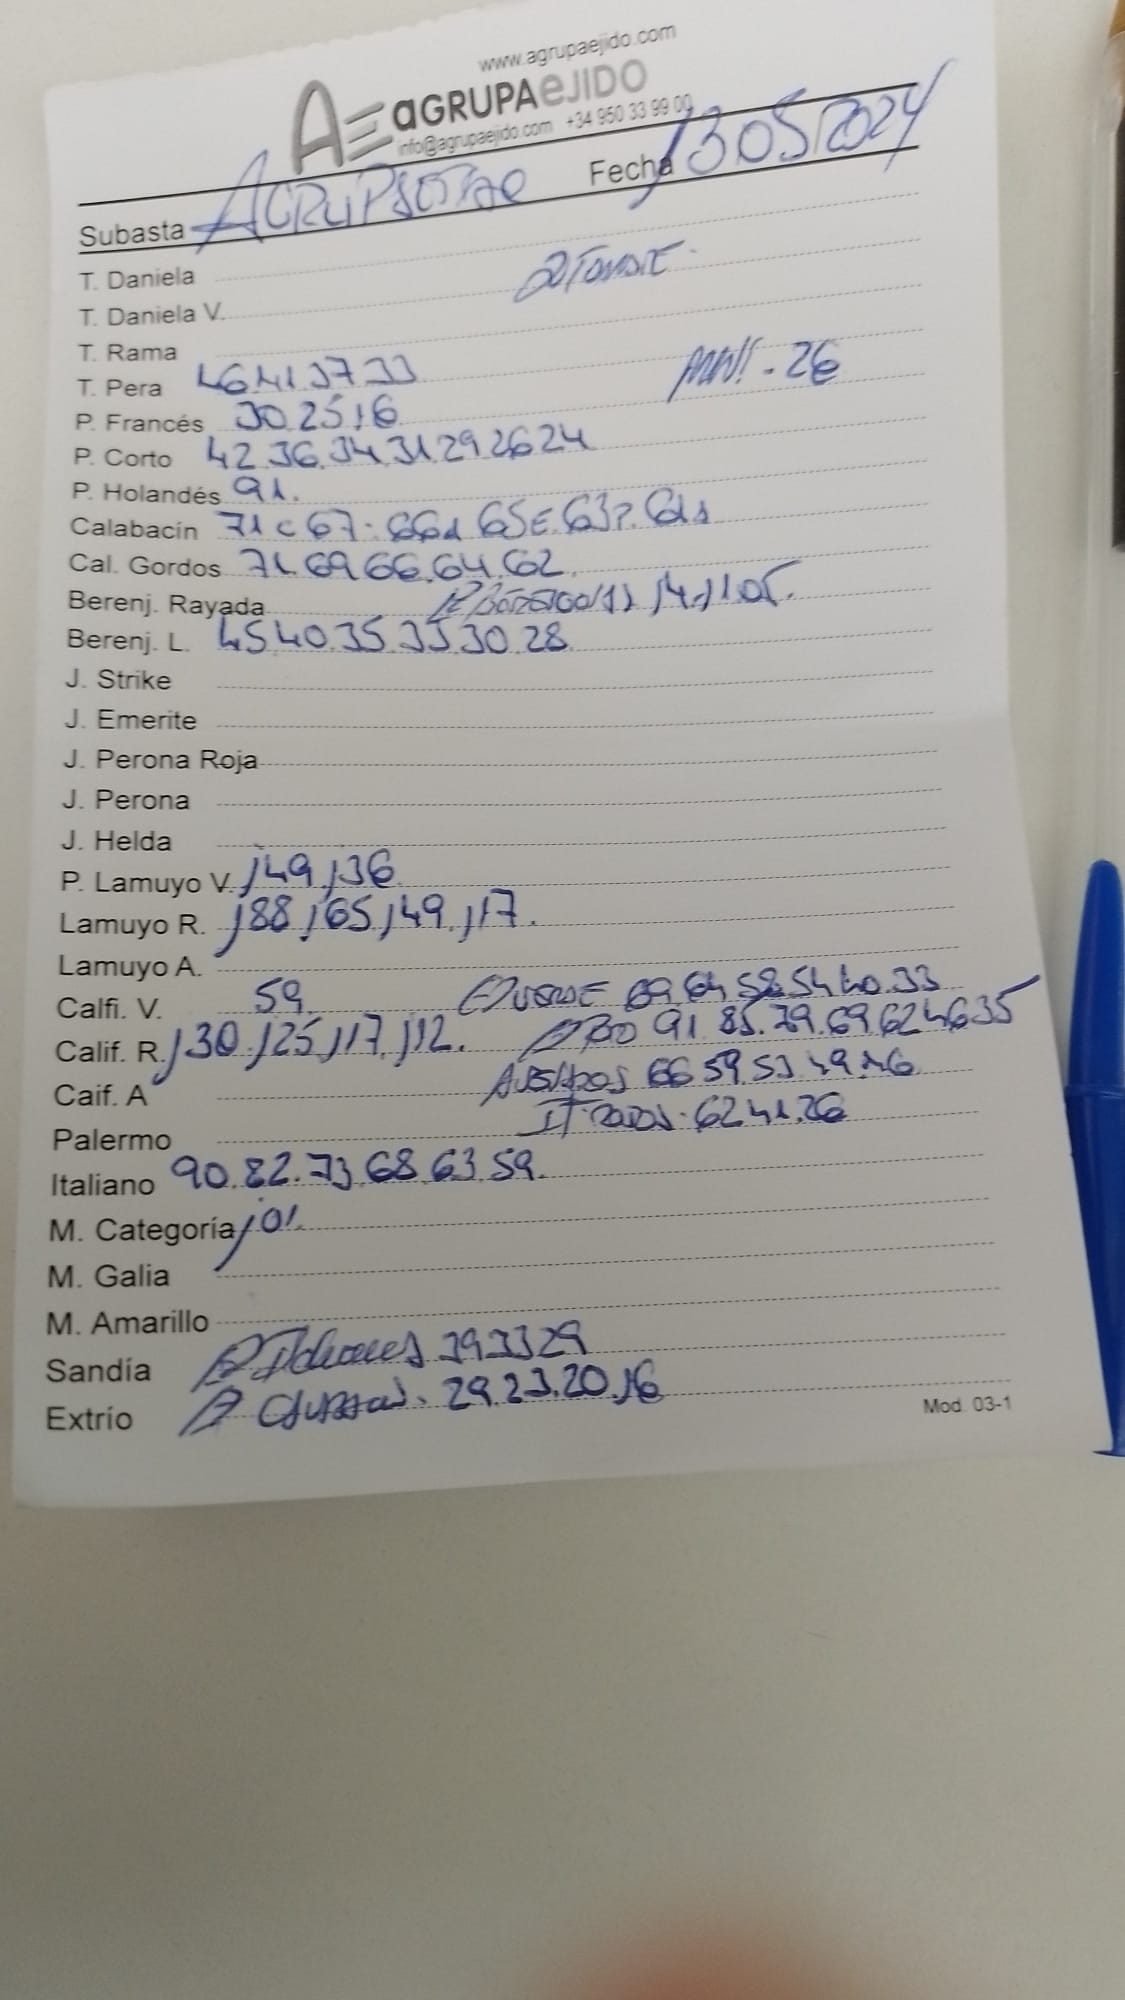 www.agrupaejido.com
AE aGRUPAeJIDO
info@agrupaejido.com +34 950 33 99 00
Subasta Fecha 13 05/2024
T. Daniela
T. Daniela V.
T. Rama
T. Pera 46.41.37.33
26
P. Francés 30.25.16
P. Corto 42.36.34.31.29.26.24
P. Holandés 91.
Calabacín 71 67 65E.63
Cal. Gordos 71.69.66.64.62.
Berenj. Rayada
Berenj. L. 45.40.35.33.30.28.
J. Strike
J. Emerite
J. Perona Roja
J. Perona
J. Helda
P. Lamuyo V. 149.136
Lamuyo R. 188.165.149.117.
Lamuyo A.
Calfi. V. 59. 69.64.58.54.40.33
Calif. R. 130.125.117.112. 91.85.79.69.62.46.35
Caif. A 66.59.53.49.46
Palermo 62.41.26
Italiano 90.82.73.68.63.59.
M. Categoría 101.
M. Galia
M. Amarillo
Sandía 39.33.29
Extrío 29.23.20.16
Mod. 03-1